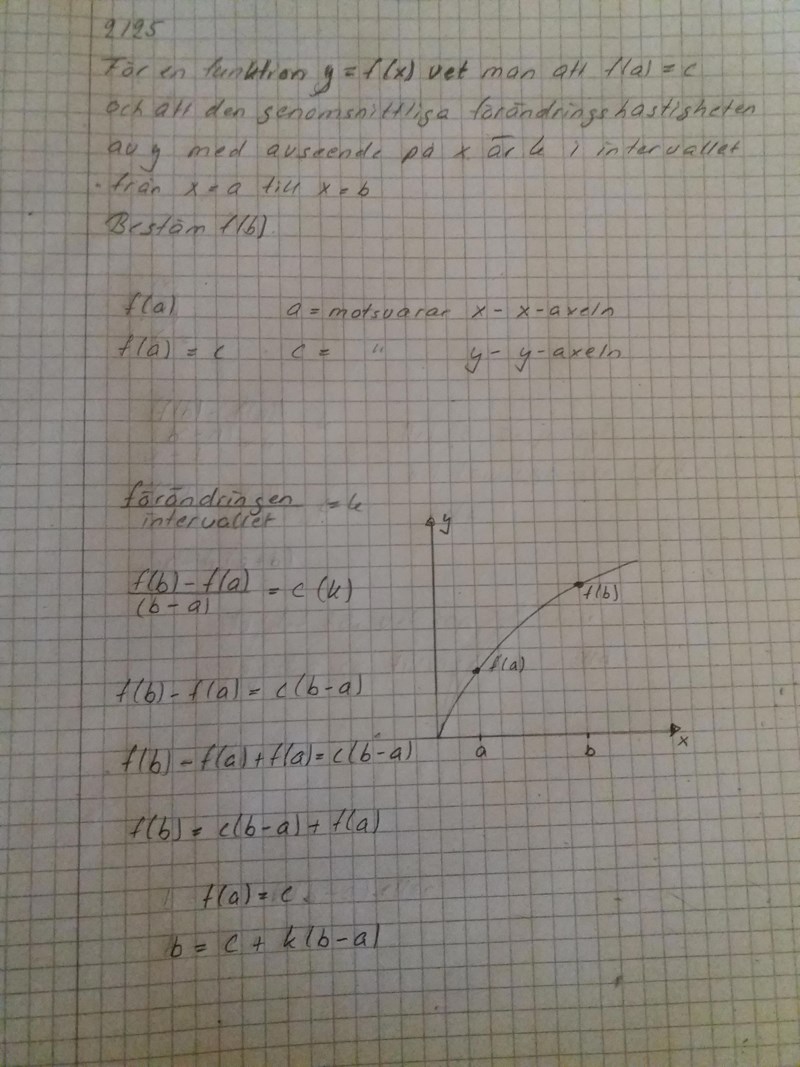 2125
För en funktion y = f(x) vet man att f(a) = c
och att den genomsnittliga förändringshastigheten
av y med avseende på x är k i intervallet
från x = a till x = b
Bestäm f(b).
f(a) a = motsvarar x - x-axeln
f(a) = c c = " y - y-axeln
förändringen / intervallet = k
(f(b) - f(a)) / (b - a) = c (k)
f(b) - f(a) = c(b-a)
f(b) - f(a) + f(a) = c(b-a)
f(b) = c(b-a) + f(a)
f(a) = c
b = c + k(b-a)
y
f(b)
f(a)
a b x